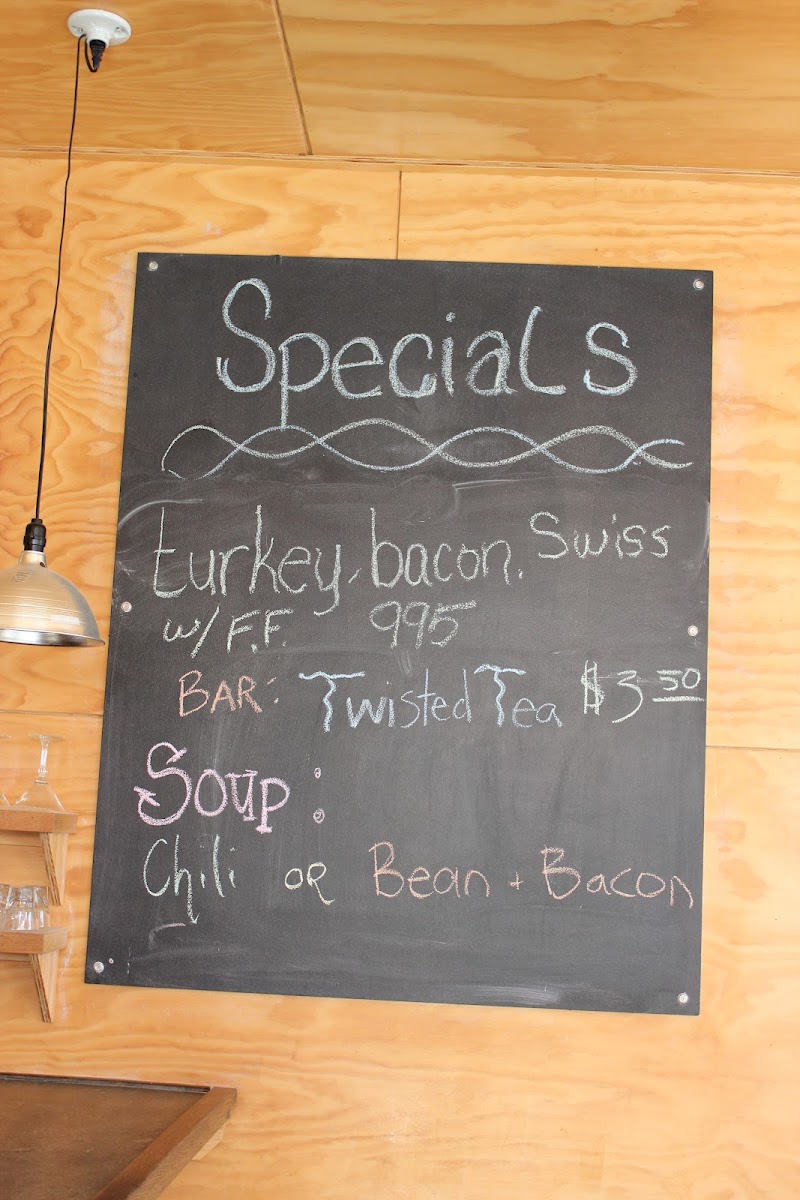 Specials
turkey, bacon, Swiss
w/ F.F. 995
BAR: Twisted Tea $3 50
Soup:
Chili OR Bean + Bacon